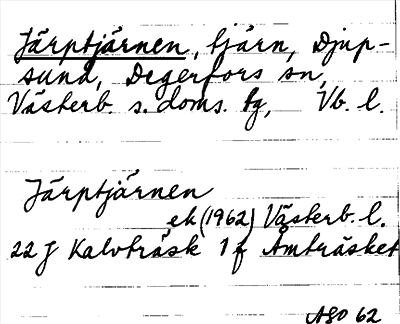 Järptjärnen, tjärn, Djup-
sund, Degerfors sn,
Västerb. s. doms. tg, Vb. l.
Järptjärnen
ek (1962) Västerb. l.
22 J Kalvträsk 1 f Åmträsket
ASO 62